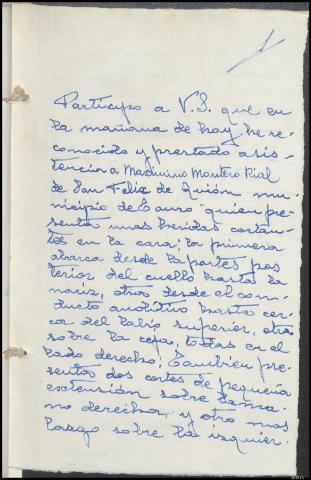 Participo a V.S. que en
la mañana de hoy he re-
conocido y prestado asis-
tencia a Maximino Montero Rial
de San Feliz de Quión mu-
nicipio de Touro quien pre-
senta unas heridas cortan-
tes en la cara; la primera
abarca desde la partes pos
terior del cuello hasta la
nariz, otra desde el con-
ducto auditivo hasta cer-
ca del labio superior, otra
sobre la ceja, todas en el
lado derecho; Tambien pre-
senta dos cortes de pequeña
extensión sobre la ma-
no derecha, y otro mas
largo sobre la izquier-